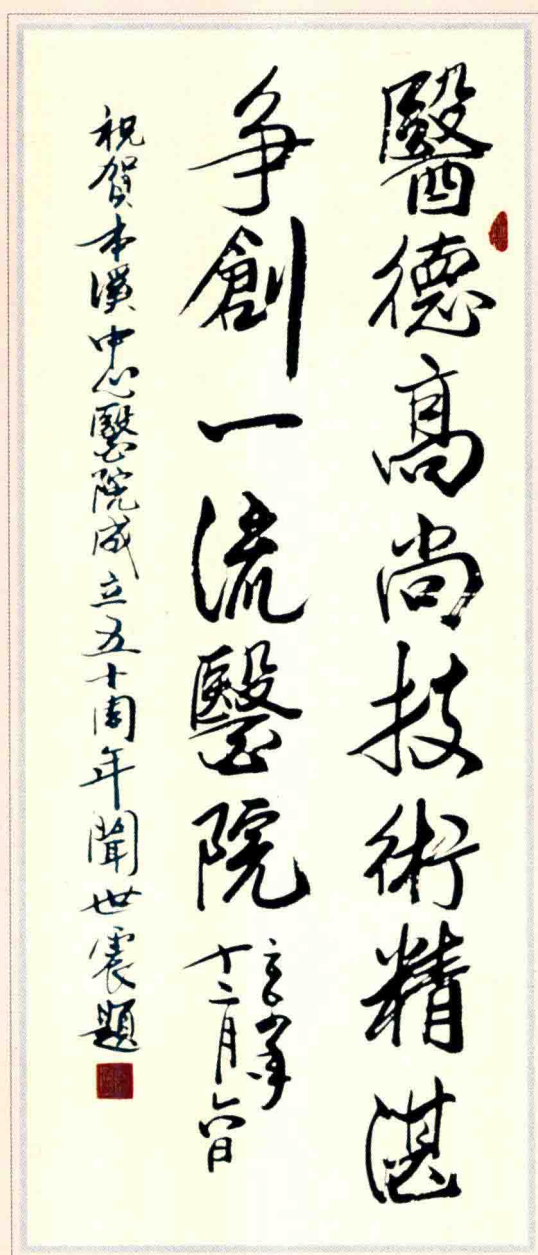 醫德高尚技術精湛
争創一流醫院
十二月六日
祝賀本溪中心醫院成立五十周年聞世震題